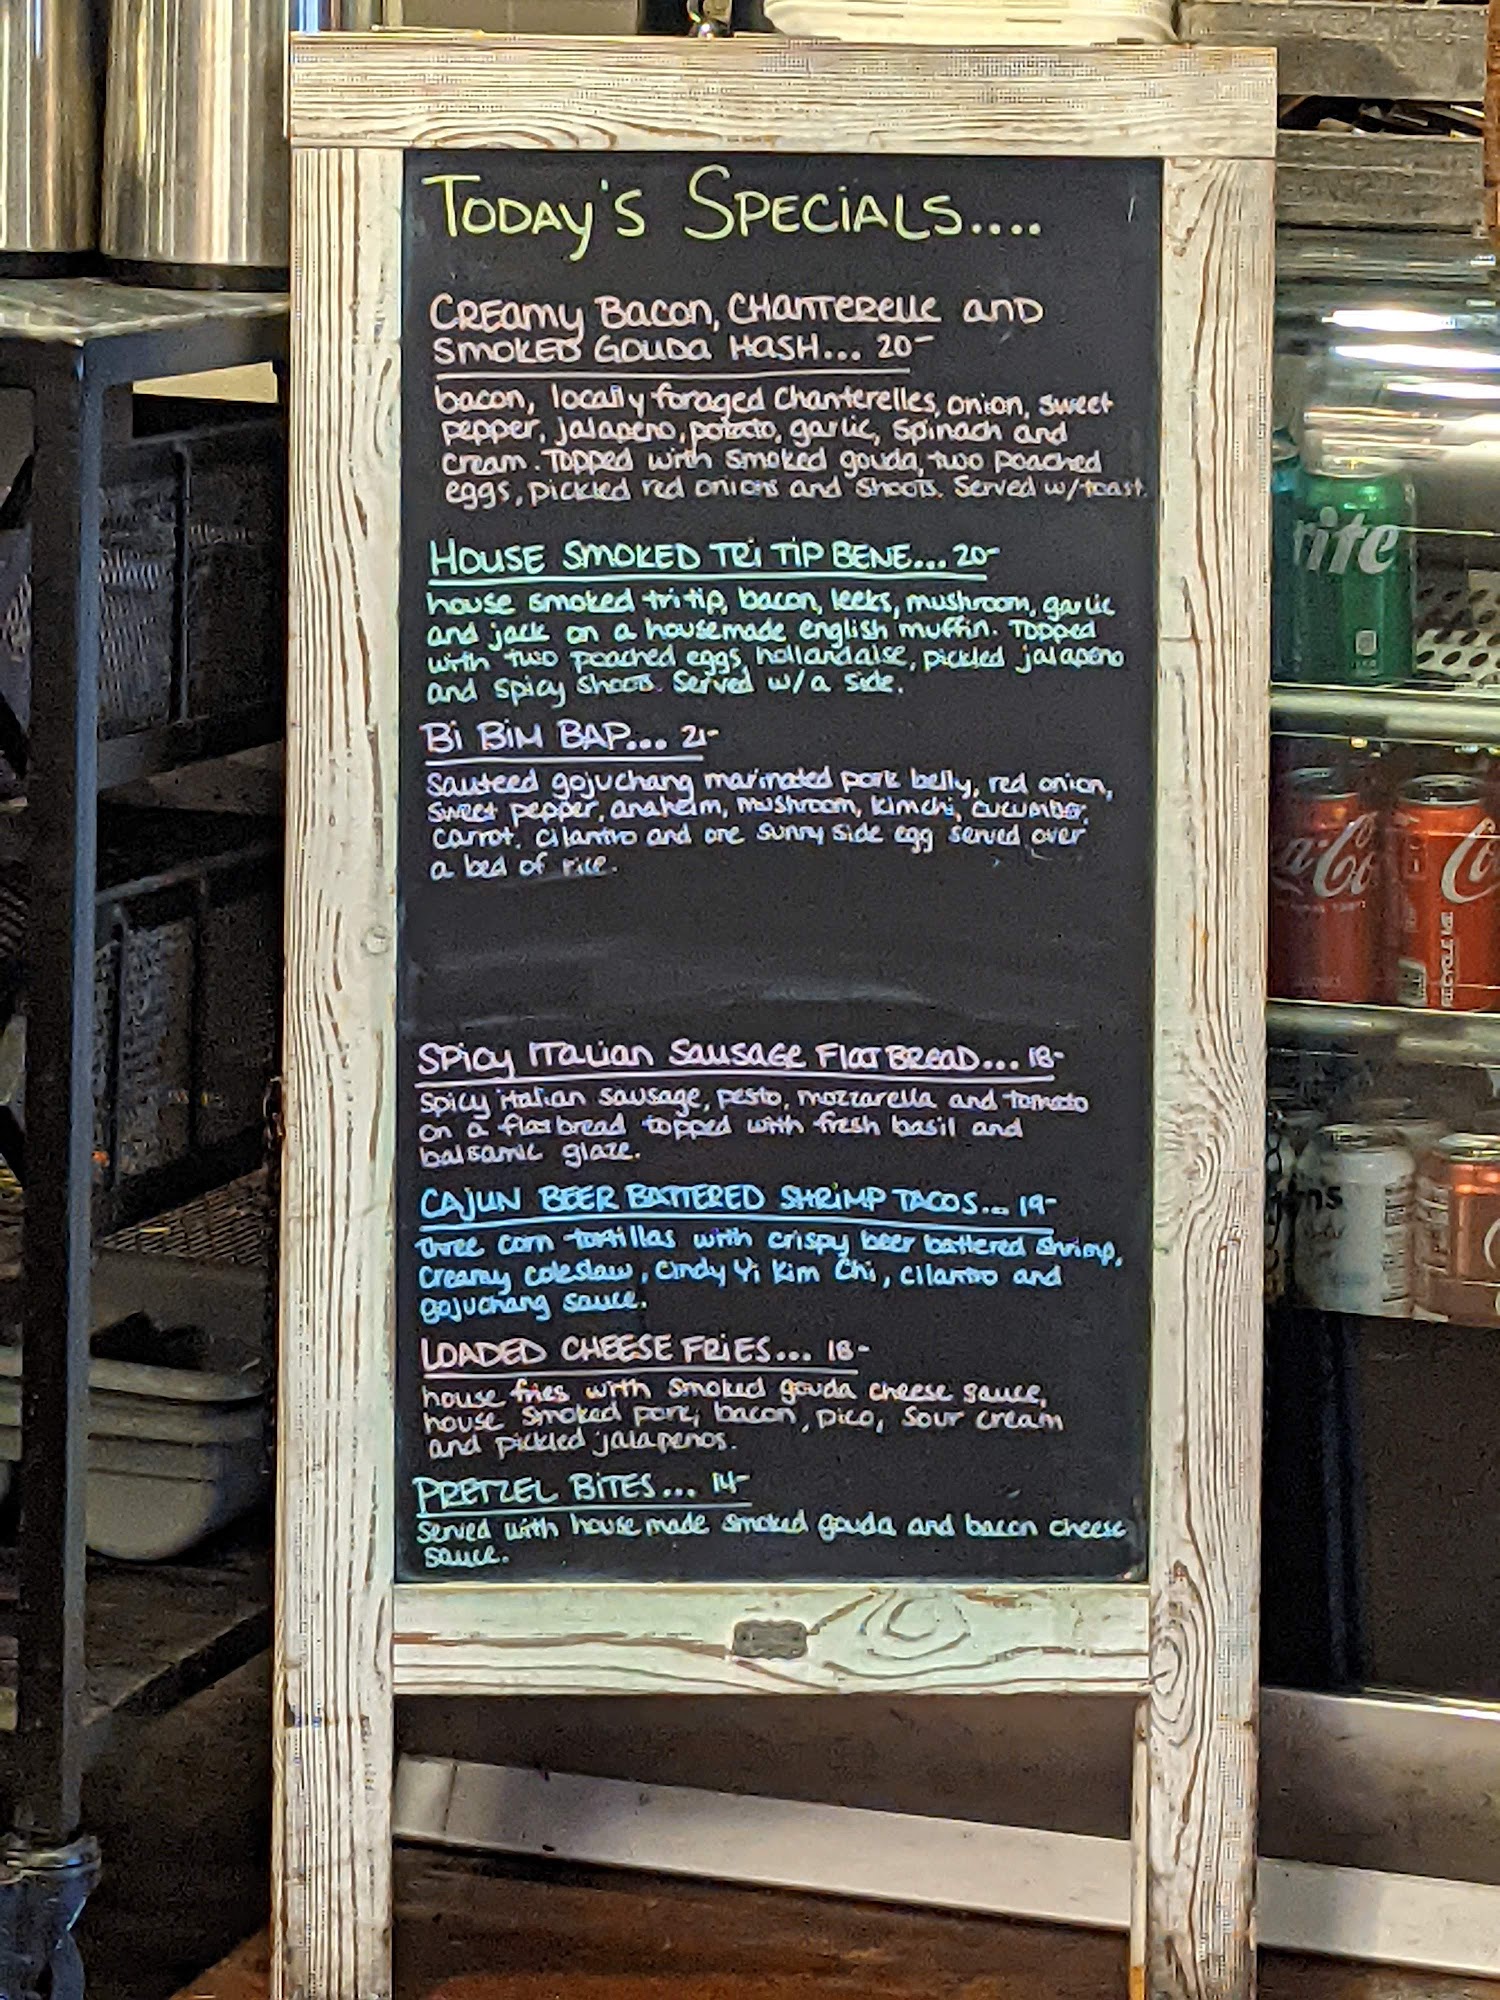 Today's Specials....
Creamy Bacon, Chanterelle and
Smoked Gouda Hash... 20-
bacon, locally foraged Chanterelles, onion, sweet
pepper, jalapeno, potato, garlic, spinach and
cream. Topped with smoked gouda, two poached
eggs, pickled red onions and shoots. Served w/toast.
House Smoked Tri Tip Bene... 20-
house smoked tri tip, bacon, leeks, mushroom, garlic
and jack on a housemade english muffin. Topped
with two poached eggs, hollandaise, pickled jalapeno
and spicy shoots. Served w/a side.
Bi Bim Bap... 21-
Sauteed gojuchang marinated pork belly, red onion,
sweet pepper, anaheim, mushroom, kimchi, cucumber,
carrot, cilantro and one sunny side egg served over
a bed of rice.
Spicy Italian Sausage Flatbread... 18-
Spicy italian sausage, pesto, mozzarella and tomato
on a flatbread topped with fresh basil and
balsamic glaze.
Cajun Beer Battered Shrimp Tacos... 19-
three corn tortillas with crispy beer battered shrimp,
creamy coleslaw, Cindy Yi Kim Chi, cilantro and
gojuchang sauce.
Loaded Cheese Fries... 18-
house fries with smoked gouda cheese sauce,
house smoked pork, bacon, pico, sour cream
and pickled jalapenos.
Pretzel Bites... 14-
served with house made smoked gouda and bacon cheese
sauce.
rite
a-Co
Co
RECYCLE ME
ns